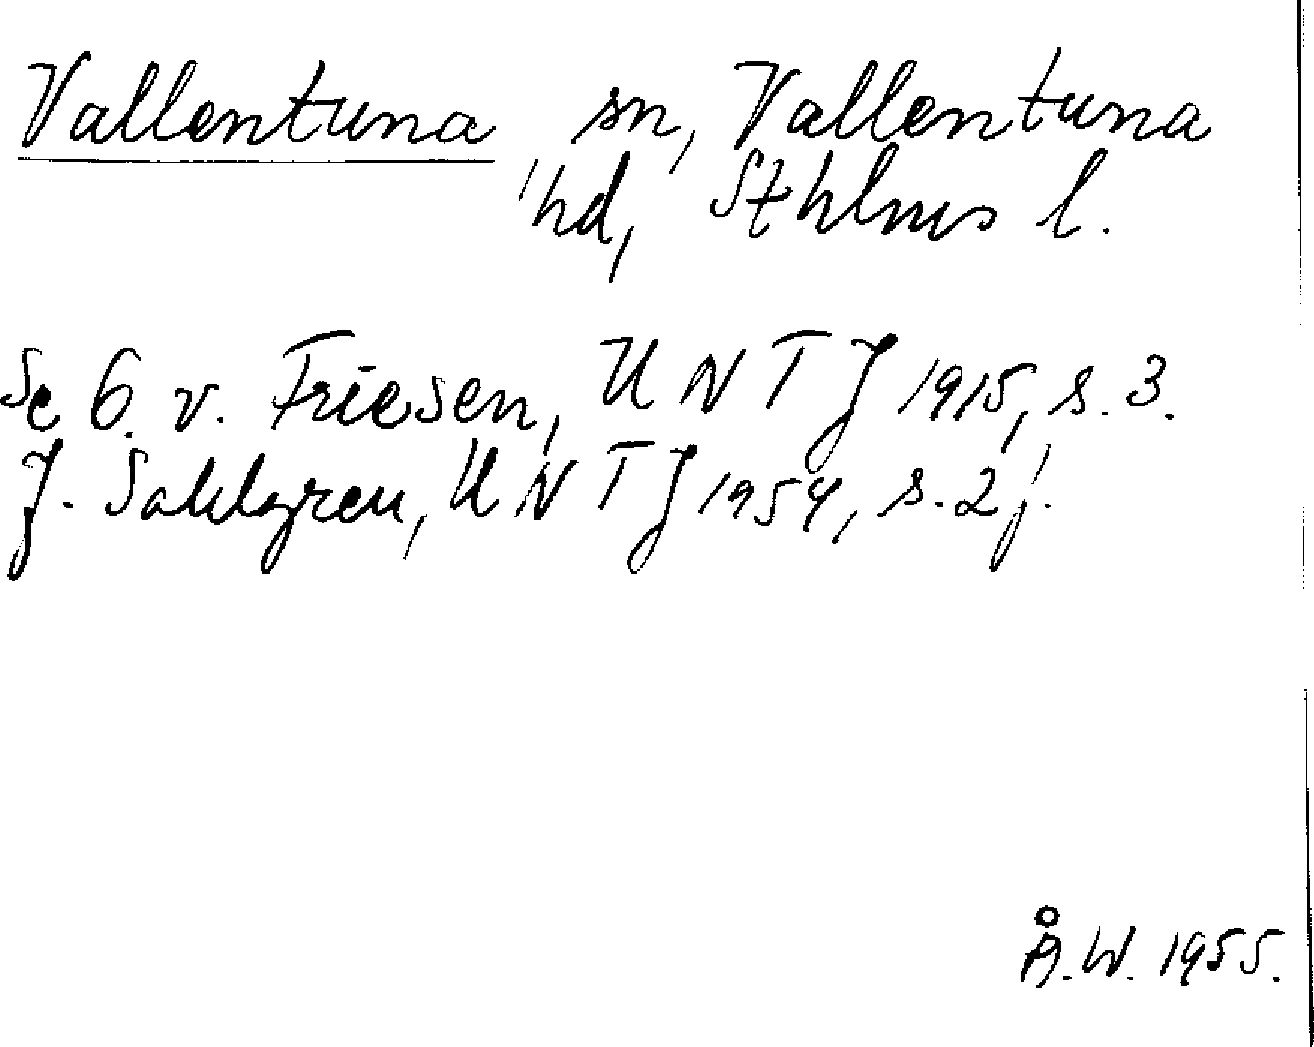 Vallentuna sn, Vallentuna
hd, Sthlms l.
Se O. v. Friesen, UNTJ 1915, s. 3.
J. Sahlgren, UNTJ 1954, s. 2 f.
Å.W. 1955.